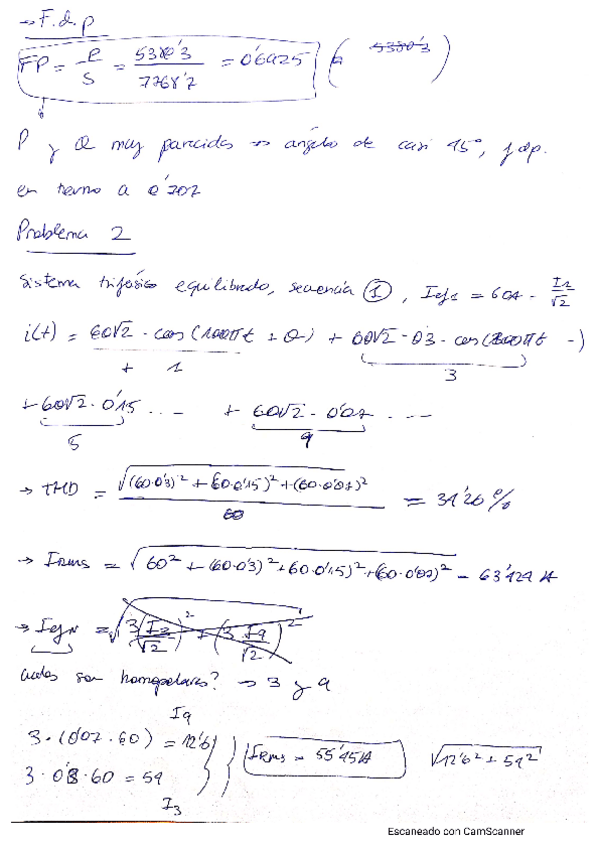 → F.d.p
FP = P/S = 5380'3/7768'7 = 0'6925 ( 5380'3 )
P y Q muy parecidas → ángulo de casi 45°, fdp.
en torno a 0'707
Problema 2
Sistema trifásico equilibrado, secuencia ①, Ief1 = 60A - I1/√2
i(t) = 60√2 · cos(100πt + θ) + 60√2 · 0'3 · cos(300πt -)
+ 1 3
+ 60√2 · 0'15 .... + 60√2 · 0'07 ....
5 9
→ THD = √((60·0'3)² + (60·0'15)² + (60·0'07)²) / 60 = 34'26%
→ IRMS = √(60² + (60·0'3)² + 60·0'15)² + (60·0'07)² = 63'424 A
→ IefN = √(3(I3/√2)² + (3 I9/√2)²
cuales son homopolares? → 3 y 9
I9
3 · (0'07 · 60) = 12'6
3 · 0'3 · 60 = 54
I3
IRMS = 55'45A √(12'6² + 54²)
Escaneado con CamScanner